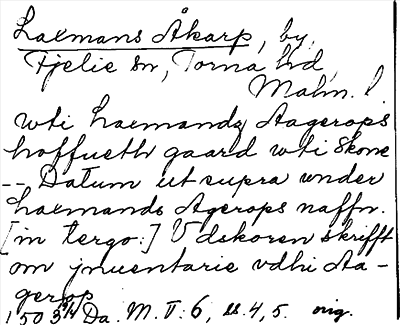 Laxmans Åkarp, by,
Fjelie sn, Torna hd,
Malm. l.
wti Laxmandz Aagerops
hoffueth gaard wti Skone
-- Datum ut supra vnder
Laxmands Agerops naffn.
[in tergo:] Vdskoren skrifft
om jnuentarie vdhi Aa-
gerop
1503 3/4 Da. M. T: 6, s. 4, 5. orig.